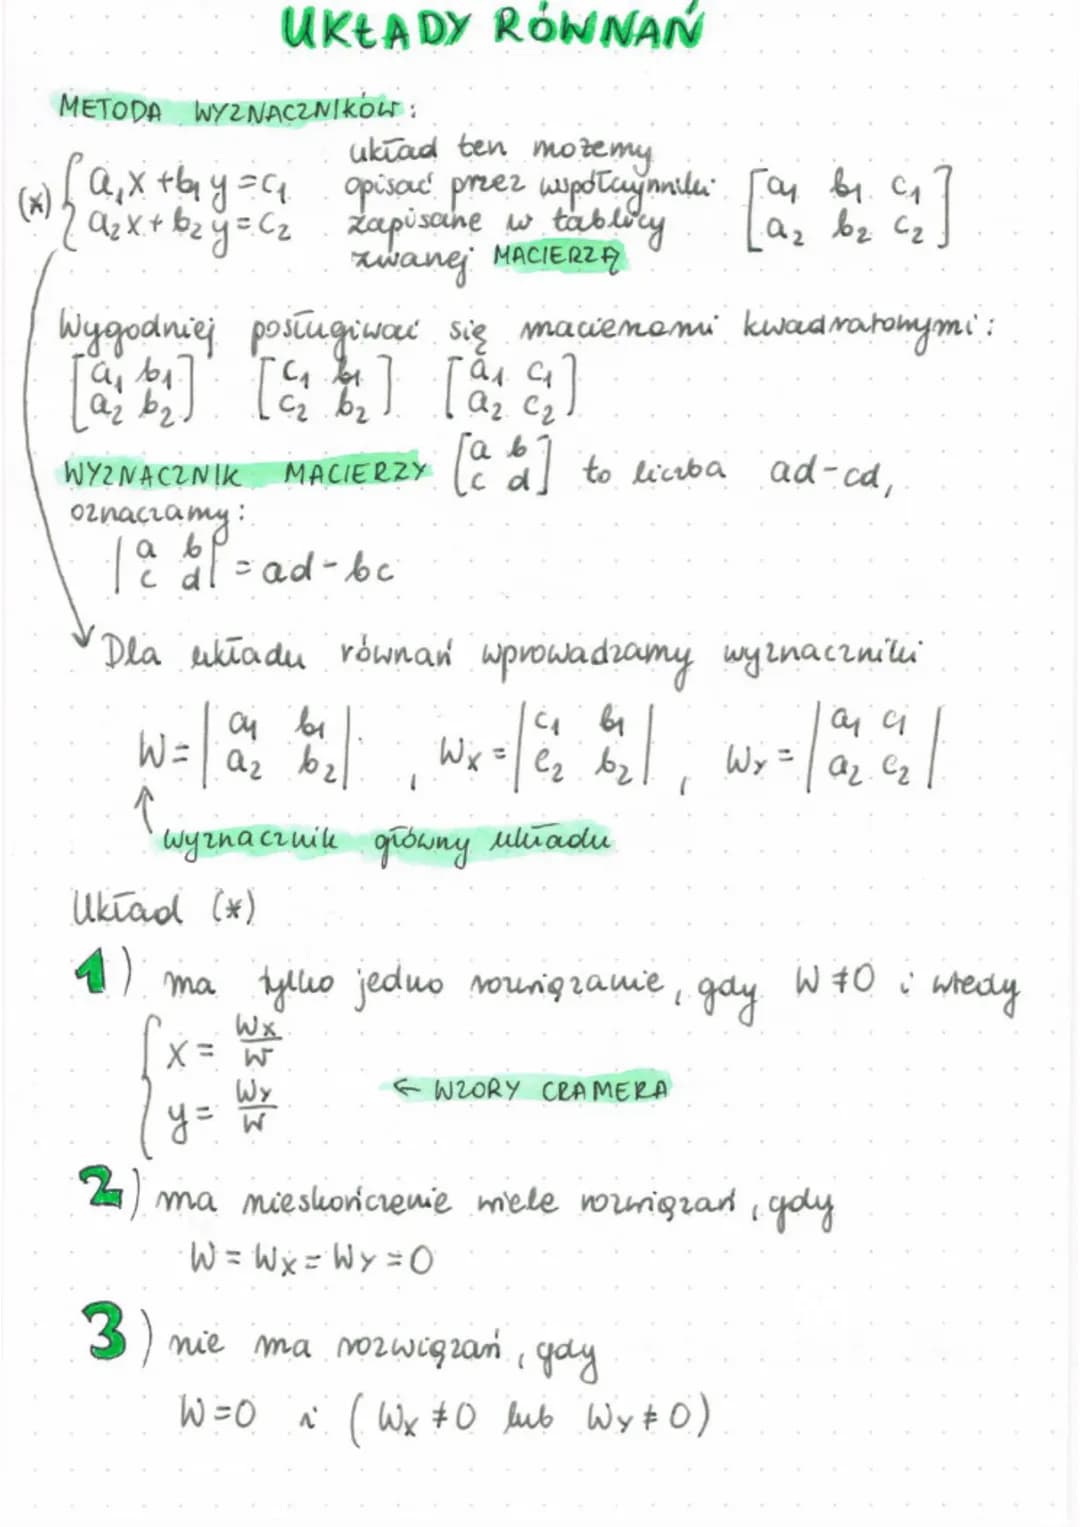 UKŁADY RÓWNAŃ
METODA WYZNACZNIKÓW:
(*) { a₁x + b₁y = c₁
a₂x + b₂y = c₂
układ ten możemy
opisać przez współczynniki
zapisane w tablicy
zwanej MACIERZĄ
[a₁ b₁ c₁]
[a₂ b₂ c₂]
Wygodniej posługiwać się macierzami kwadratowymi:
[a₁ b₁] [c₁ b₁] [a₁ c₁]
[a₂ b₂] [c₂ b₂] [a₂ c₂]
WYZNACZNIK MACIERZY [a b] to liczba ad-cd,
[c d]
oznaczamy:
|a b|
|c d| = ad-bc
Dla układu równań wprowadzamy wyznaczniki
W = |a₁ b₁| , Wx = |c₁ b₁| , Wy = |a₁ c₁|
|a₂ b₂| |c₂ b₂| |a₂ c₂|
↑ wyznacznik główny układu
Układ (*)
1) ma tylko jedno rozwiązanie, gdy W ≠ 0 i wtedy
{ x = Wx/W
y = Wy/W
← WZORY CRAMERA
2) ma nieskończenie wiele rozwiązań, gdy
W = Wx = Wy = 0
3) nie ma rozwiązań, gdy
W = 0 i (Wx ≠ 0 lub Wy ≠ 0)